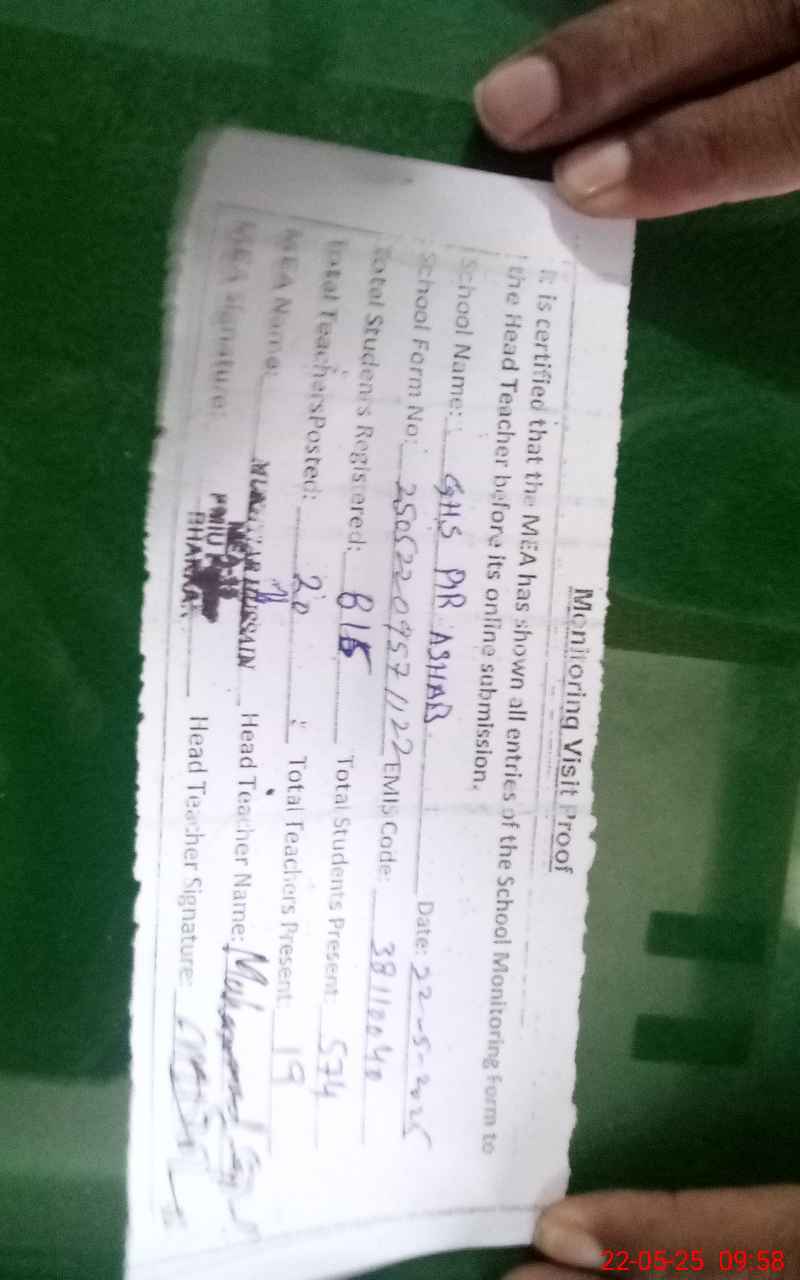 Monitoring Visit Proof
It is certified that the MEA has shown all entries of the School Monitoring Form to
the Head Teacher before its online submission.
School Name: GHS PIR ASHAB Date: 22-5-2025
School Form No: 25052209571122 EMIS Code: 38110040
Total Students Registered: 815 Total Students Present: 574
Total Teachers Posted: 20 Total Teachers Present: 19
MEA Name: HUSSAIN Head Teacher Name: Muhammad
MEA Signature: MEA PMIU BHAKKAR Head Teacher Signature:
22-05-25 09:58